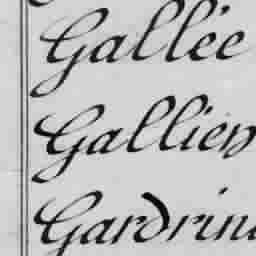 Gallée
Gallien
Gardrin